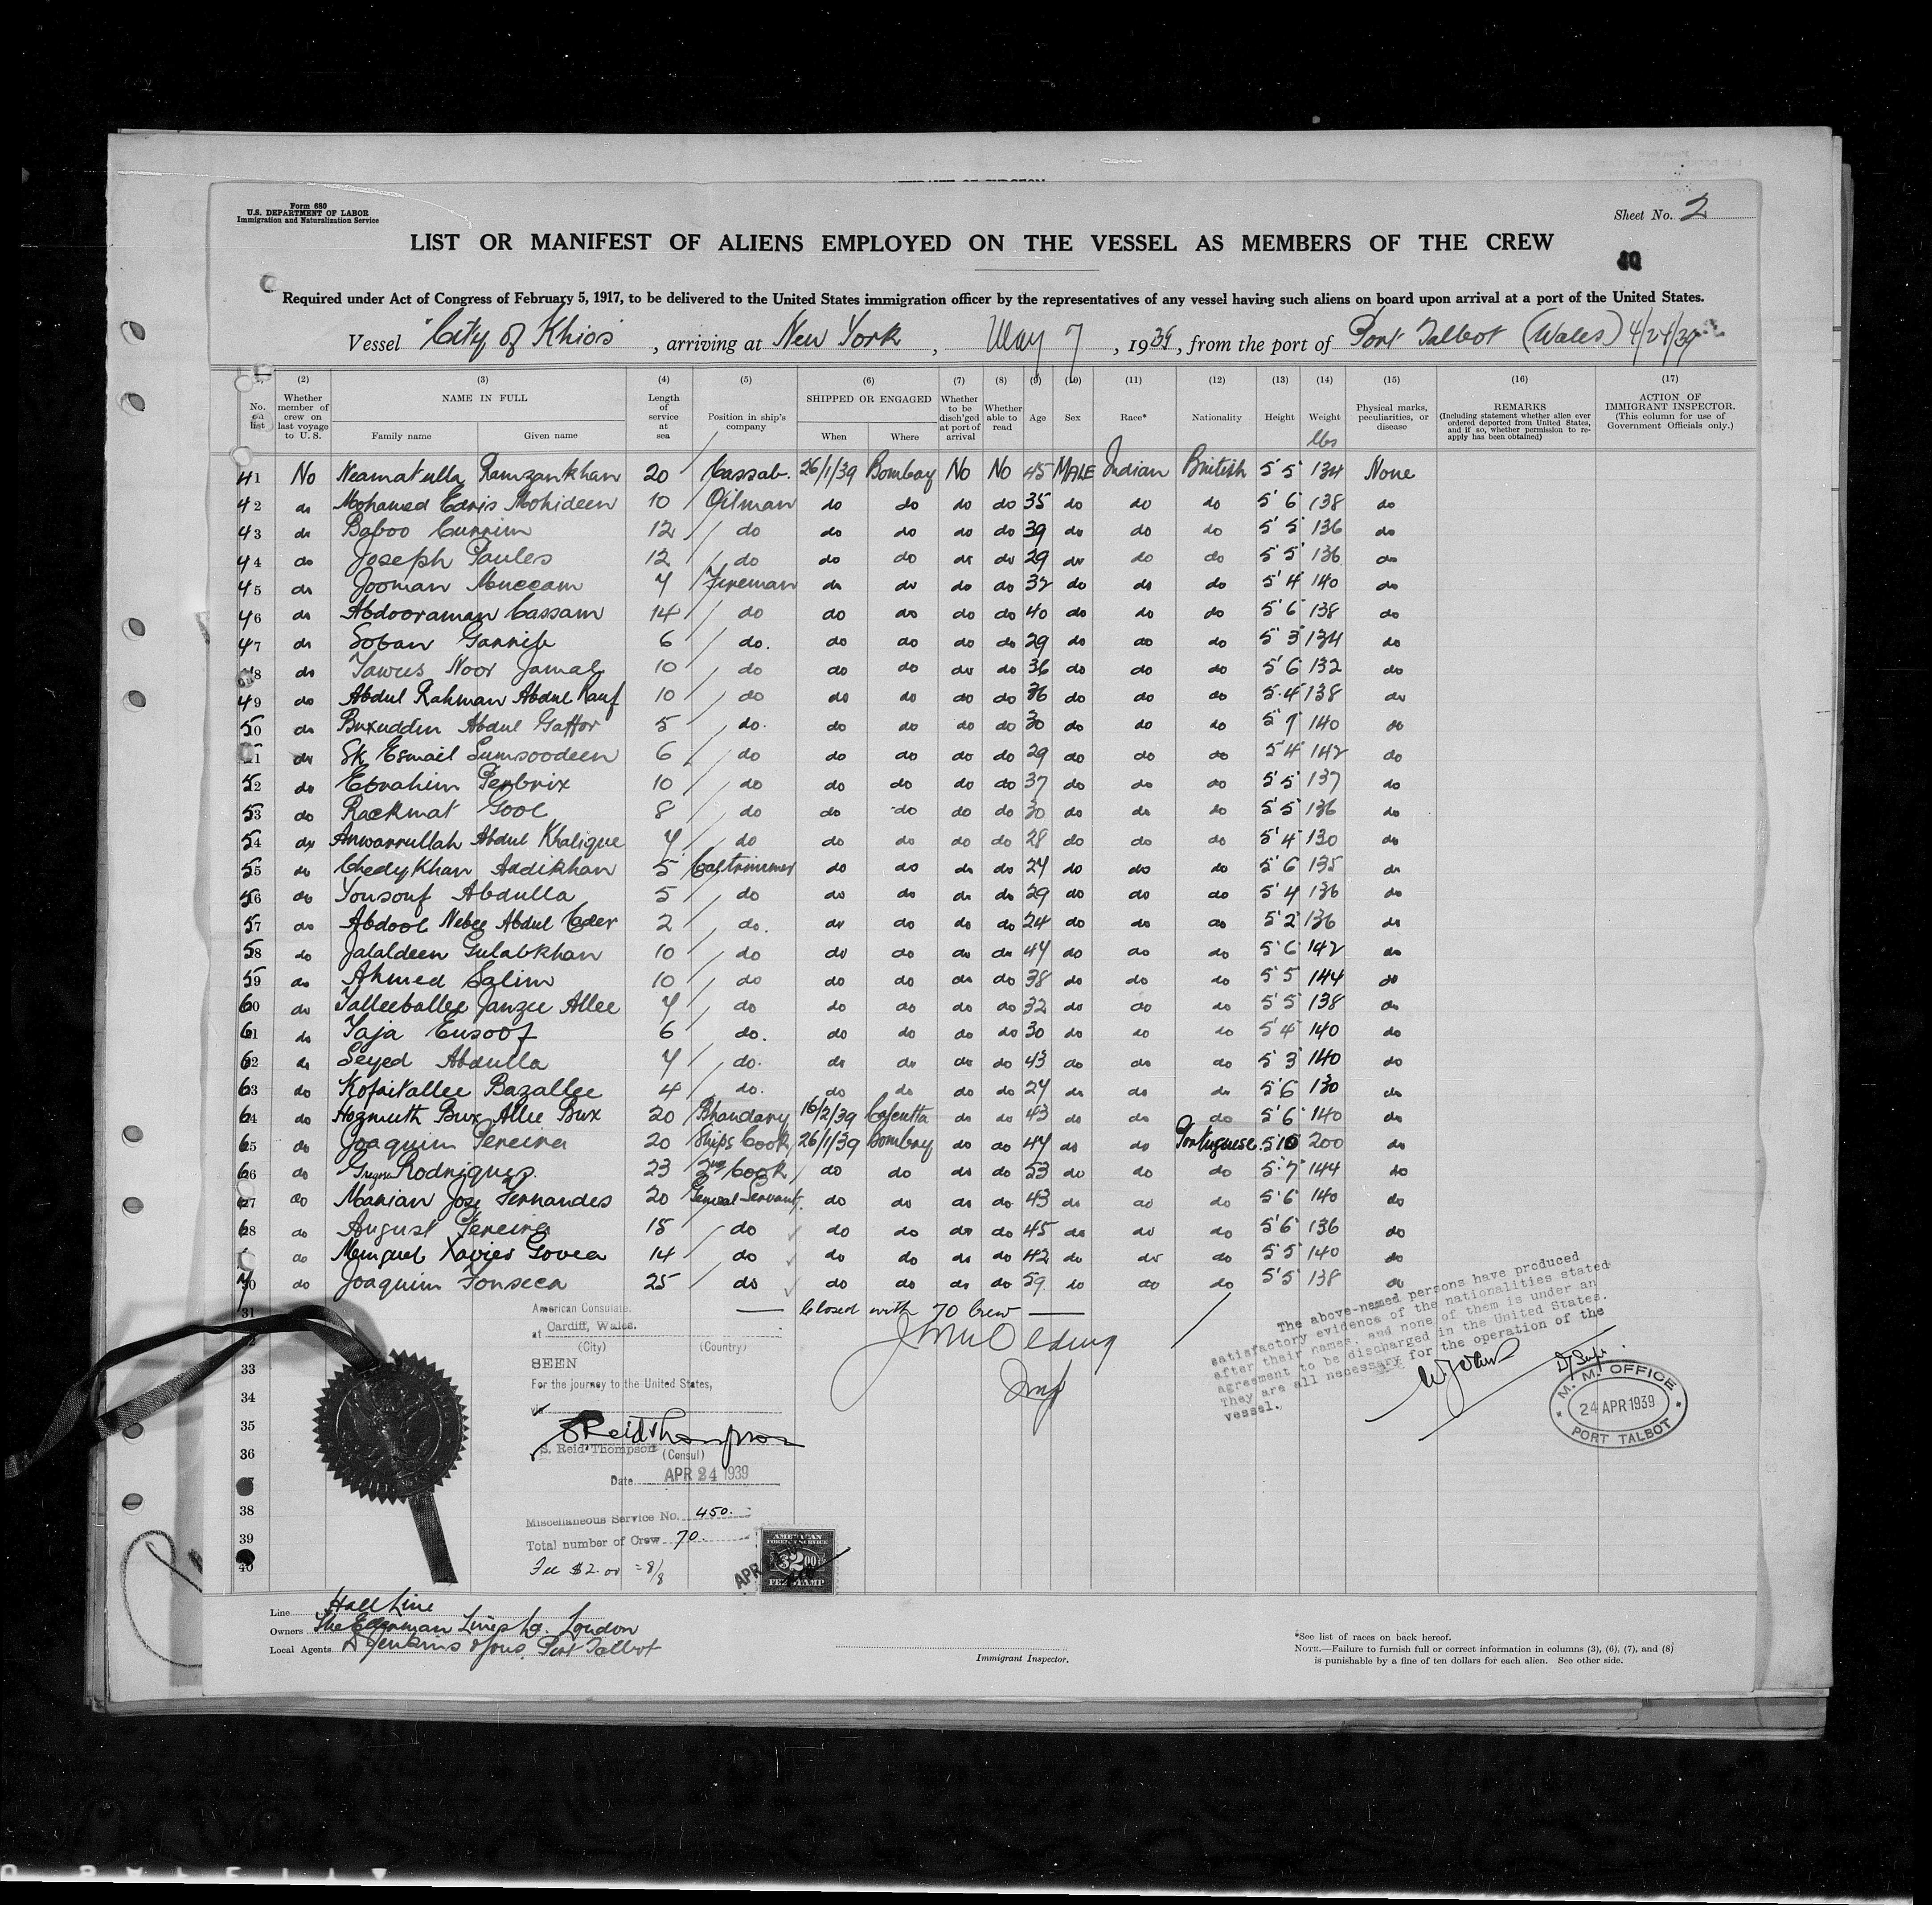 Form 680
U.S. DEPARTMENT OF LABOR
Immigration and Naturalization Service
Sheet No. 2
LIST OR MANIFEST OF ALIENS EMPLOYED ON THE VESSEL AS MEMBERS OF THE CREW
Required under Act of Congress of February 5, 1917, to be delivered to the United States immigration officer by the representatives of any vessel having such aliens on board upon arrival at a port of the United States.
Vessel "City of Khios", arriving at New York, May 7, 1939, from the port of Port Talbot (Wales) 4/24/39
(1) (2) (3) (4) (5) (6) (7) (8) (9) (10) (11) (12) (13) (14) (15) (16) (17)
No. on list Whether member of crew on last voyage to U. S. NAME IN FULL Family name Given name Length of service at sea Position in ship's company SHIPPED OR ENGAGED When Where Whether to be disch'ged at port of arrival Whether able to read Age Sex Race* Nationality Height Weight lbs Physical marks, peculiarities, or disease REMARKS (Including statement whether alien ever ordered deported from United States, and if so, whether permission to re-apply has been obtained) ACTION OF IMMIGRANT INSPECTOR. (This column for use of Government Officials only.)
41 No Neamatulla Ramzankhan 20 Cassab. 26/1/39 Bombay No No 45 MALE Indian British 5'5 134 None
42 do Mohamed Edris Mohideen 10 Oilman do do do do 35 do do do 5'6 138 do
43 do Baboo Currim 12 do do do do do 39 do do do 5'5 136 do
44 do Joseph Paules 12 do do do do do 29 do do do 5'5 136 do
45 do Jooman Muccam 7 Fireman do do do do 32 do do do 5'4 140 do
46 do Abdooraman Cassam 14 do do do do do 40 do do do 5'6 138 do
47 do Soban Garrib 6 do. do do do do 29 do do do 5'3 134 do
48 do Tawus Noor Jamal 10 do do do do do 36 do do do 5'6 132 do
49 do Abdul Rahman Abdul Rauf 10 do do do do do 36 do do do 5.4 138 do
50 do Buxuddin Abdul Gaffor 5 do. do do do do 30 do do do 5'7 140 do
51 do Sk. Esmail Sumsoodeen 6 do do do do do 29 do do do 5'4 142 do
52 do Ebrahim Perbrix 10 do do do do do 37 do do do 5'5 137 do
53 do Rackmat Gool 8 do do do do do 30 do do do 5'5 136 do
54 do Anwarrullah Abdul Khalique 7 do do do do do 28 do do do 5'4 130 do
55 do Chedykhan Addikhan 5 Coaltrimmer do do do do 24 do do do 5'6 135 do
56 do Yousouf Abdulla 5 do do do do do 29 do do do 5'4 136 do
57 do Abdool Nebee Abdul Cader 2 do. do do do do 24 do do do 5'2 136 do
58 do Jalaldeen Gulabkhan 10 do do do do do 44 do do do 5'6 142 do
59 do Ahmed Salim 10 do do do do do 38 do do do 5'5 144 do
60 do Talleeballee Janzee Allee 7 do do do do do 32 do do do 5'5 138 do
61 do Taja Eusoof 6 do. do do do do 30 do do do 5'4 140 do
62 do Seyed Abdulla 7 do. do do do do 43 do do do 5'3 140 do
63 do Kofaitallee Bazallee 4 do. do do do do 24 do do do 5'6 130 do
64 do Hozmuth Bux Allie Bux 20 Bhandary 16/2/39 Calcutta do do 43 do do do 5'6 140 do
65 do Joaquim Pereira 20 Ships Cook 26/1/39 Bombay do do 47 do do Portuguese 5'10 200 do
66 do Rodrigues 23 2nd Cook do do do do 53 do do do 5'7 144 do
67 do Marian Jose Fernandes 20 General Servant. do do do do 43 do do do 5'6 140 do
68 do August Pereira 18 do do do do do 45 do do do 5'6 136 do
do Minguel Xavier Govea 14 do do do do do 42 do do do 5'5 140 do
70 do Joaquim Fonseca 25 do do do do do 59 do do do 5'5 138 do
31 Closed with 70 Crew
American Consulate.
at Cardiff, Wales.
(City) (Country)
SEEN
For the journey to the United States,
via
S. Reid Thompson
S. Reid Thompson
(Consul)
Date APR 24 1939
Miscellaneous Service No. 450.
Total number of Crew 70.
Fee $2.00 = 8/8
33
34
35
36
38
39
40
The above-named persons have produced
satisfactory evidence of the nationalities stated
after their names, and none of them is under an
agreement to be discharged in the United States.
They are all necessary for the operation of the
vessel.
M. M. OFFICE
24 APR 1939
PORT TALBOT
AMERICAN
FOREIGN SERVICE
$2.00
FEE STAMP
APR
Line Hall Line
Owners The Ellerman Lines Ld. London
Local Agents D Jenkins & Sons, Port Talbot
Immigrant Inspector.
*See list of races on back hereof.
NOTE.—Failure to furnish full or correct information in columns (3), (6), (7), and (8)
is punishable by a fine of ten dollars for each alien. See other side.